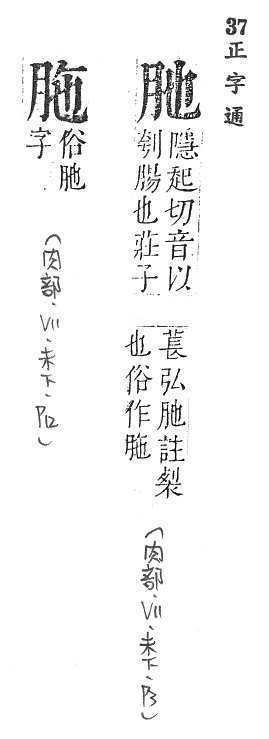 37正字通
胣
隱起切音以
刳腸也莊子
萇弘胣註裂
也俗作胣
(肉部、VII、未下、P3)
䏲
俗胣
字
(肉部、VII、未下、P12)